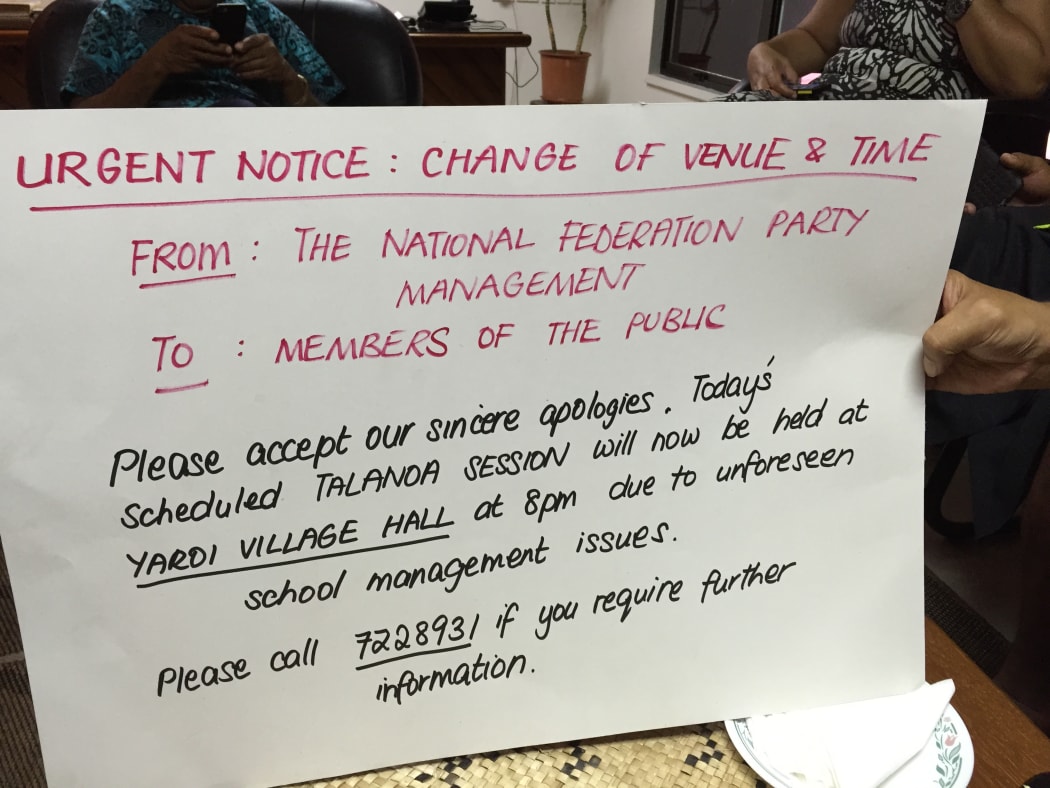 URGENT NOTICE : CHANGE OF VENUE & TIME
FROM : THE NATIONAL FEDERATION PARTY
MANAGEMENT
TO : MEMBERS OF THE PUBLIC
Please accept our sincere apologies. Today's
scheduled TALANOA SESSION will now be held at
YAROI VILLAGE HALL at 8pm due to unforeseen
school management issues.
Please call 7228931 if you require further
information.